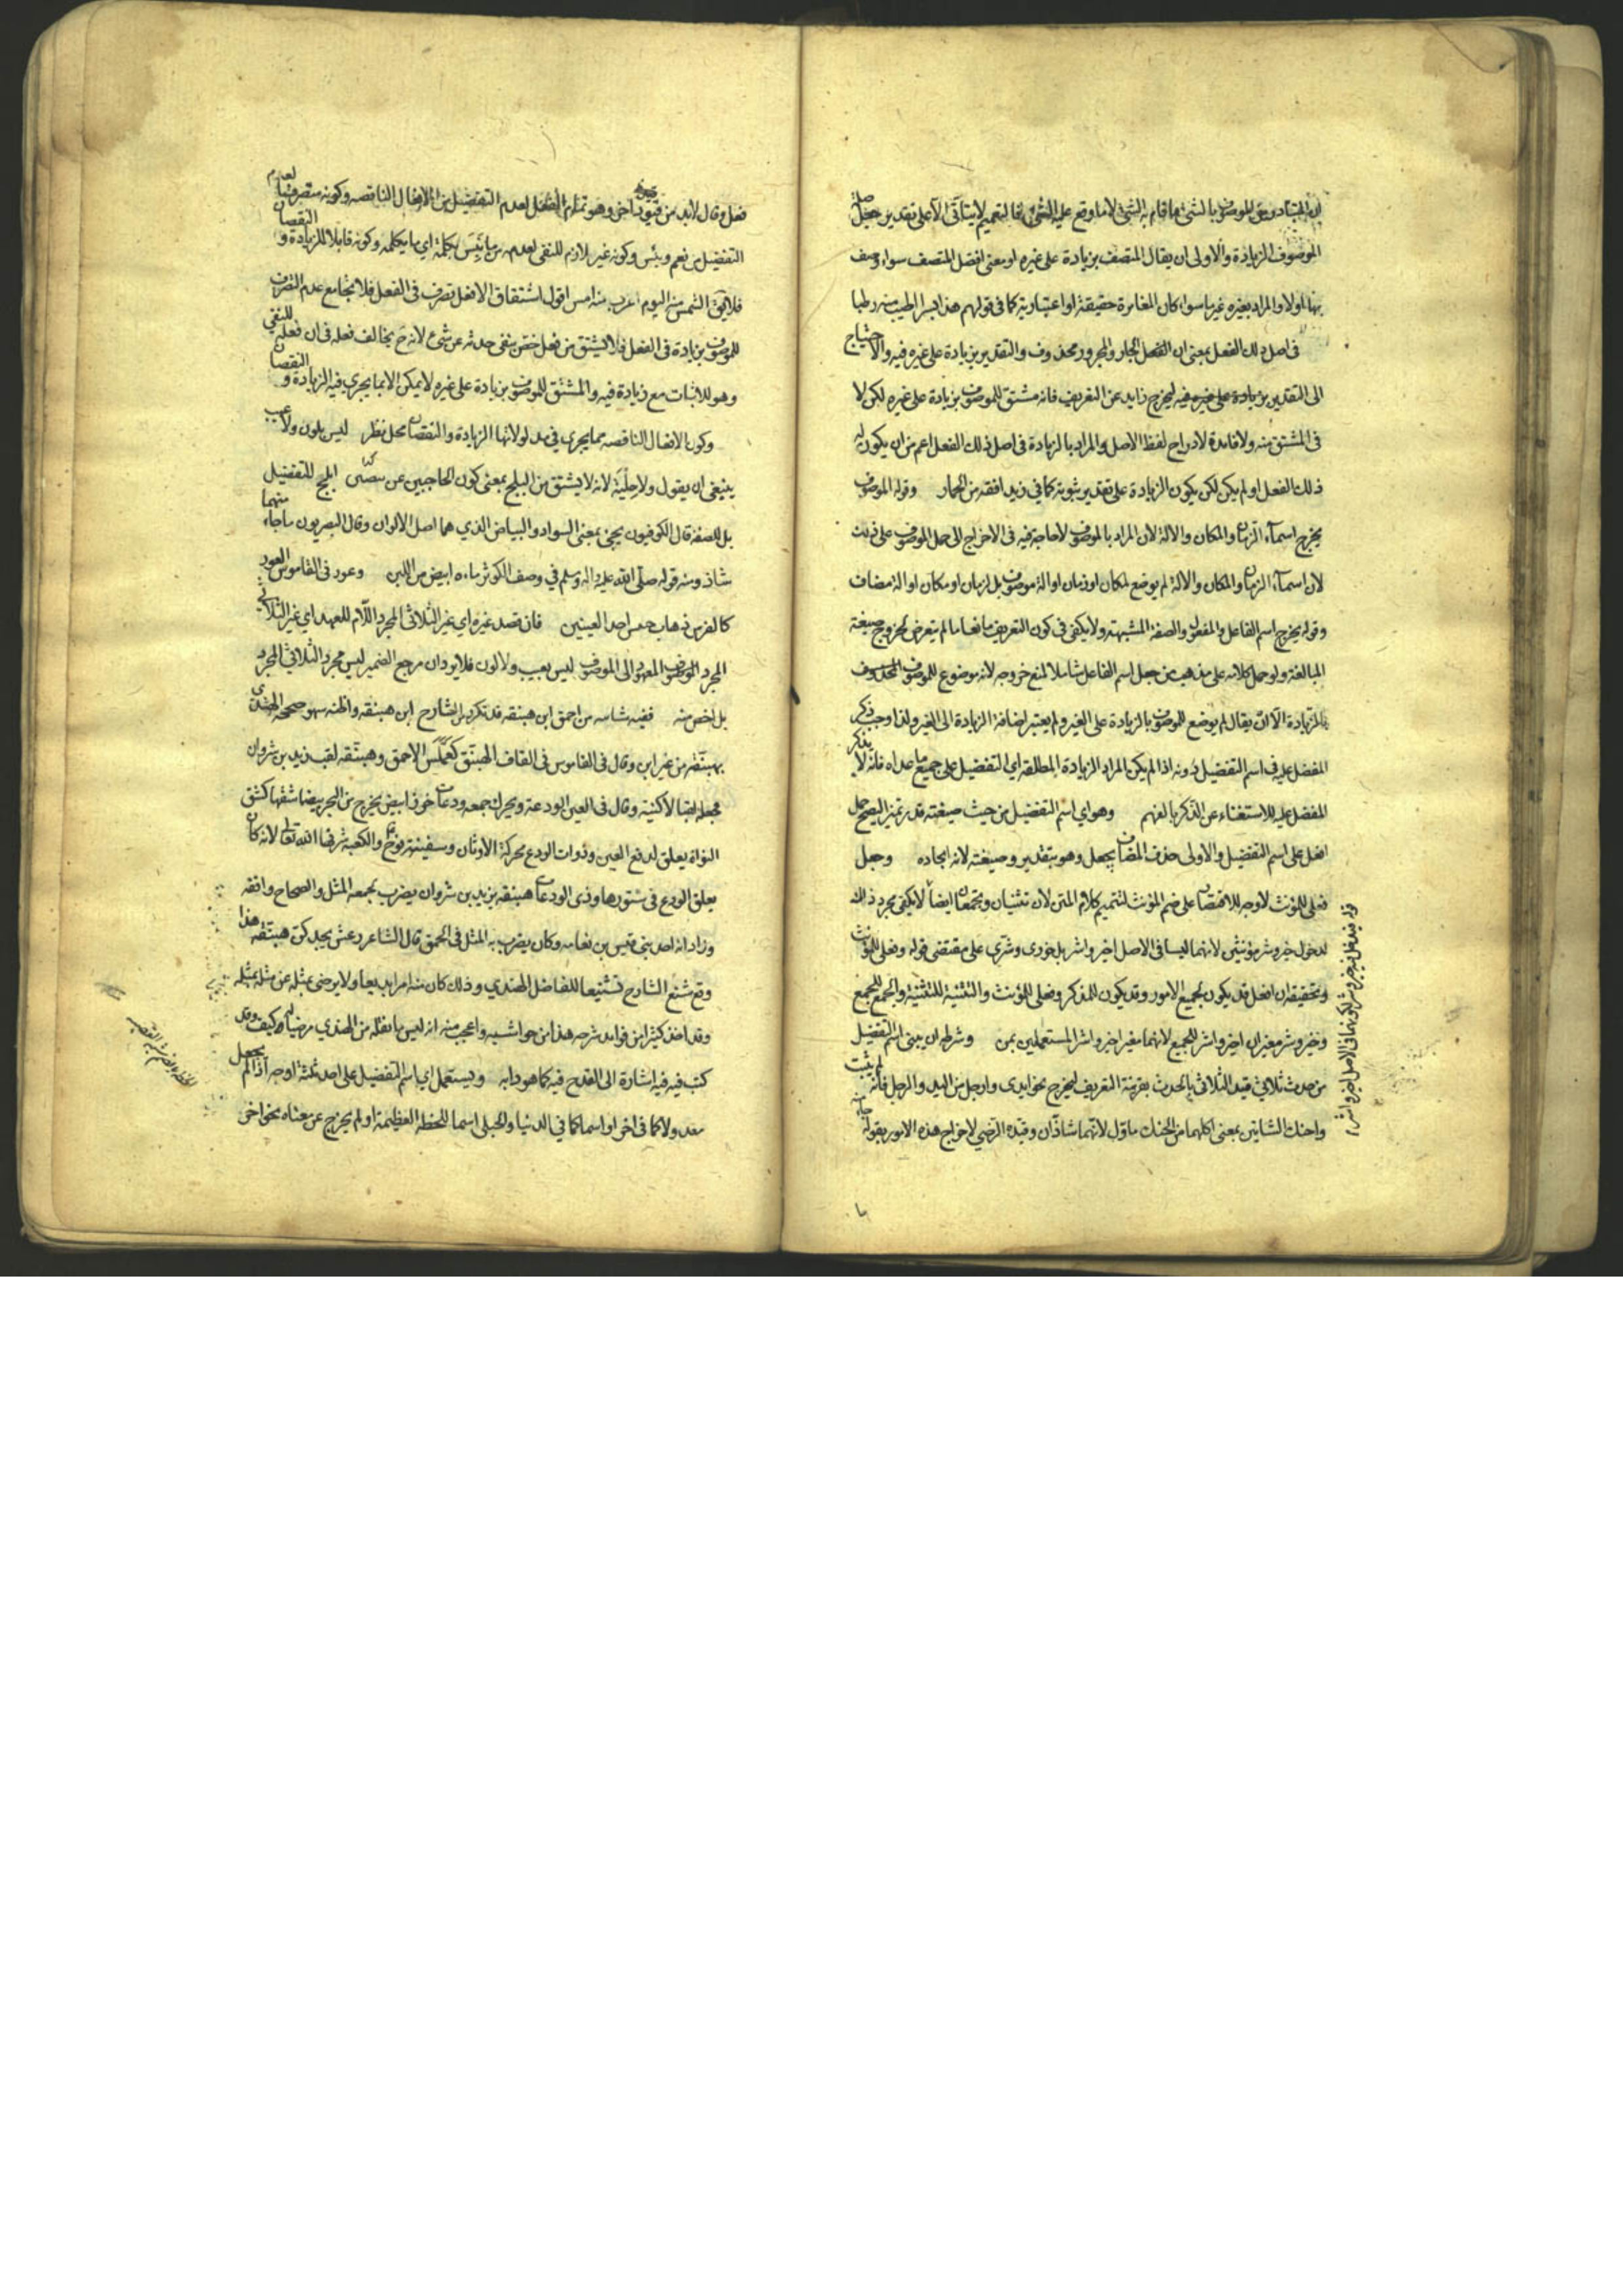 المتبادر من الموصوف بالشئ ما قام به الشئ لا ما وقع عليه الشئ فالتعميم لا يتأتى الا على تقدير جعل صلة
الموصوف الزيادة والاولى ان يقال المتصف بزيادة على غيره او بمعنى افضل المتصف سواء وصف
بها اولا والمراد بغيره غير ما سواء كان المغايرة حقيقة او اعتبارية كما في قولهم هذا بسرا اطيب منه رطبا
في اصل ذلك الفعل بمعنى ان الفعل الجار والمجرور محذوف والتقدير بزيادة على غيره فيه والاحتياج
الى التقدير بزيادة على غيره فيه ليخرج زايد عن التعريف فانه مشتق للموصوف بزيادة على غيره لكن لا
في المشتق منه ولا فائدة لادراج لفظ الاصل والمراد بالزيادة في اصل ذلك الفعل اعم من ان يكون له
ذلك الفعل او لم يكن لكن يكون الزيادة على تقدير ثبوته كما في زيد افقه من الحمار وقوله الموصوف
يخرج اسماء الزمان والمكان والالة لان المراد بالموصوف لا حاجة فيه في الاخراج الى حمل الموصوف على ذات
لان اسماء الزمان والمكان والالة لم يوضع لمكان او زمان او الة موصوف بل لزمان او مكان او الة مضاف
وقوله يخرج اسم الفاعل والمفعول والصفة المشبهة ولا يكفي في كون التعريف مانعا ما لم يتعرض لخروج صيغة
المبالغة ولو حمل كلامه على مذهب من جعل اسم الفاعل شاملا لمنع خروجه لانه موضوع للموصوف المحذوف
بالزيادة الا ان يقال لم يوضع للموصوف بالزيادة على الغير ولم يعتبر اضافة الزيادة الى الغير ولذا وجب ذكر
المفضل عليه في اسم التفضيل دونه اذا لم يكن المراد الزيادة المطلقة اي التفضيل على جميع ما عداه فانه لا يذكر
المفضل عليه للاستغناء عن الذكر بالفهم وهو اي اسم التفضيل من حيث صيغته قدر تميز ليصح حمل
افعل على اسم التفضيل والاولى حذف المضاف بجعل وهو بتقدير وصيغته لانه ايجاده وجعل
فعلى للمؤنث لا وجه للاقتصار على ضم المؤنث لتتميم كلام المتن لان تثنيان وتجمعان ايضا لا يكفي مجرد ذلك
لدخول خير وشر مؤنثين لانهما ليسا في الاصل اخير واشر بل خورى وشرى على مقتضى قوله وفعلى للمؤنث
وتحقيقه ان افعل قد يكون لجميع الامور وقد يكون للمذكر وفعلى للمؤنث والتثنية للتثنية والجمع للجمع
وخير وشر مغيران اخير واشر للجميع لانهما مغير اخير واشر المستعملين بمن وشرطه ان يبنى اسم التفضيل
من حدث ثلاثي قيد الثلاثي بالحدث بقرينة التعريف ليخرج نحو ايدى وارجل من اليد والرجل فانه لم يثبت
واحنك الشاتين بمعنى اكلهما من الحنك ماول لانهما شاذان وقيده الرضي لاخراج هذه الامور بقوله جاء منه
قوله فيدخل فيه خير وشر لكونهما في الاصل اخير واشر
فعل وقال لابد من قيود اخر وهو تمام الفعل لعدم التفضيل من الافعال الناقصة وكونه متصرفيا لعدم
التفضيل من نعم وبئس وكونه غير لازم للنفي لعدمه من ما نبس بكلمة اي ما يكلمه وكونه قابلا للزيادة والنقصان
فلا يقال الشمس منه اليوم اغرب منه امس اقول اشتقاق الافعل تصرف في الفعل فلا يجامع عدم التصرف
للموصوف بزيادة في الفعل فلا يشتق من فعل ختص بنفي حدثه عن شئ لانه ح يخالف فعله في ان فعله للنفي
وهو للاثبات مع زيادة فيه والمشتق للموصوف بزيادة على غيره لا يمكن الا بما يجري فيه الزيادة والنقصان
وكون الافعال الناقصة مما يجري في مدلولاتها الزيادة والنقصان محل نظر ليس بلون ولا عيب
ينبغي ان يقول ولا حلية لانه لا يشتق من البلج بمعنى كون الحاجبين عن ابلج للتفضيل
بل للصفة قال الكوفيون يجئ بمعنى السواد والبياض الذي هما اصل الالوان وقال البصريون ما جاء منهما
شاذ ومنه قوله صلى الله عليه واله وسلم في وصف الكوثر ماءه ابيض من اللبن وعور في القاموس العور
كالفرس ذهاب حس احد العينين فان قصد غيره اي غير الثلاثي المجرد اللام للعهد اي غير الثلاثي
المجرد الموصوف المعهود الى الموصوف ليس بعيب ولا لون فلا يرد ان مرجع الضمير ليس مجرد الثلاثي المجرد
بل اخص منه ففيه شاسه من احمق ابن هبنقه قد تكرر من الشارح ابن هبنقه واظنه سهو صححه الهندي
بهبنقه من غير ابن وقال في القاموس في القاف الهبنق كعملس الاحمق وهبنقه لقب يزيد بن ثروان
فجعله لقبا لا كنية وقال في العين الودعة ويحرك جمعه ودعات خرز ابيض يخرج من البحر بيضا شقها كشق
النواة يعلق لدفع العين وذوات الودع محركة الاوثان وسفينة نوح والكعبة شرفها الله تعالى لانه كان
يعلق الودع في ستورها وذى الودعات هبنقه يزيد بن ثروان يضرب بحمقه المثل والصحاح وافقه
وزاد انه احد بني قيس بن نعامه وكان يضرب به المثل في الحمق قال الشاعر وعش بجد كن هبنقه هذا
وقع شنع الشارح تشنيعا للفاضل الهندي وذلك كان منه امرا بديعا ولا يرضى بمثله عن مثله بمثله
وقد اخذ كثيرا من فوائد شرحه هذا من حواشيه واعجب منه انه ليس ما نقله من الهندي مرضيا له كيف وقد
كتب فيه فيه اشارة الى القدح فيه كما هو دابه ويستعمل اي اسم التفضيل على احد ثلثة اوجه اذا لم يجعل
معدولا كما في اخر او اسما كما في الدنيا والحبلى اسما للخطة العظيمة او لم يخرج عن معناه نحو اخر